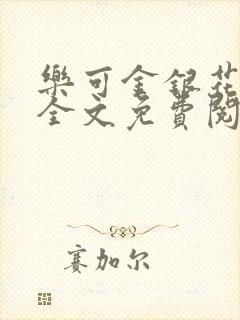 樂可金銀花
全文免費閱
賽加尔